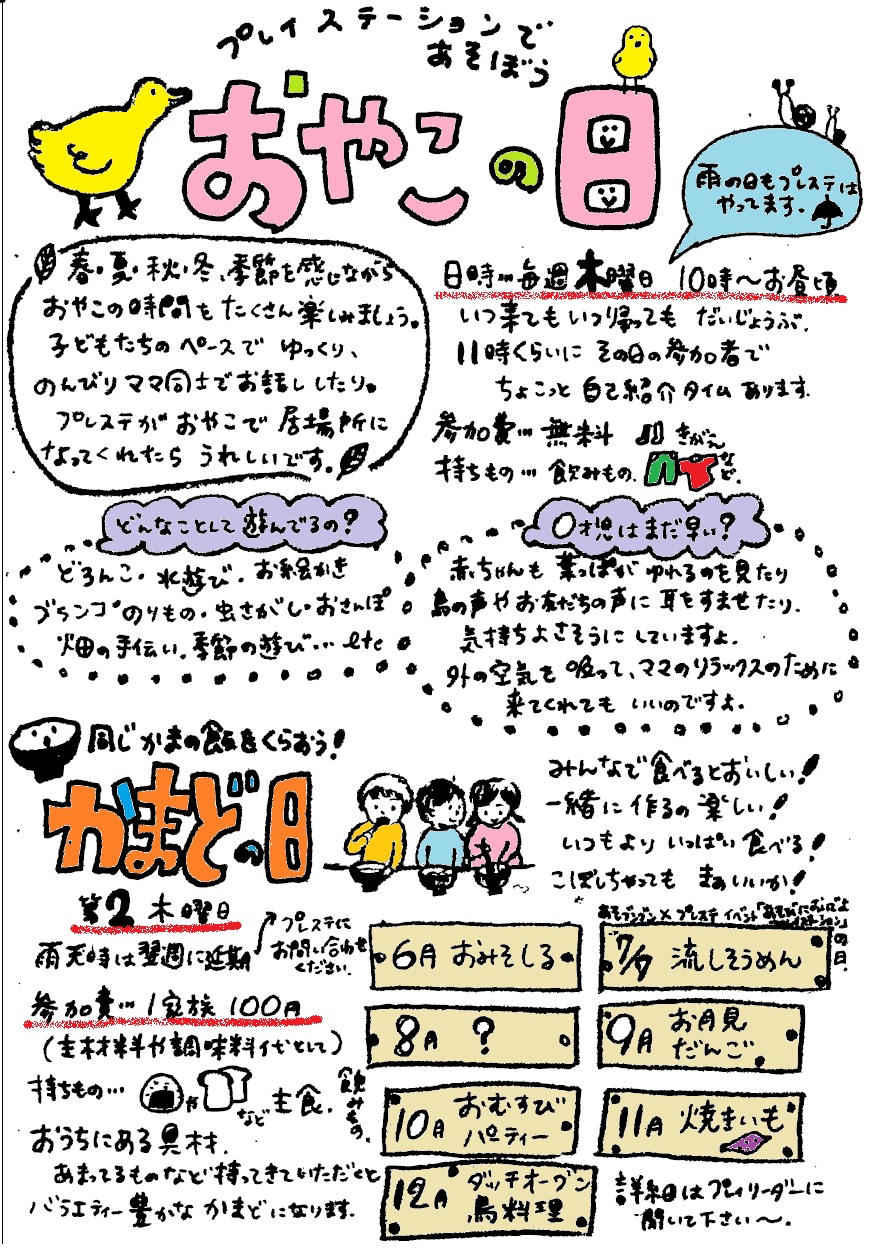 プレイステーションで
あそぼう
おやこの日
雨の日もプレステは
やってます。
春・夏・秋・冬、季節を感じながら
おやこの時間もたくさん楽しみましょう。
子どもたちのペースで ゆっくり、
のんびりママ同士でお話ししたり。
プレステがおやこで居場所に
なってくれたら うれしいです。
日時…毎週木曜日 10時〜お昼頃
いつ来てもいつ帰っても だいじょうぶ.
11時くらいに その日の参加者で
ちょこっと自己紹介タイムあります.
参加費…無料
持ちもの…飲みもの.
きがえ
など.
どんなことして遊んでるの?
どろんこ・水遊び・お絵かき
ブランコ・のりもの・虫さがし・おさんぽ
畑の手伝い.季節の遊び…etc
0才児はまだ早い?
赤ちゃんも 葉っぱが ゆれるのを見たり
鳥の声やお友だちの声に耳をすませたり.
気持ちよさそうにしていますよ.
外の空気を吸って、ママのリラックスのために
来てくれても いいのですよ.
同じかまの飯をくらおう!
かまどの日
みんなで食べるとおいしい!
一緒に作るの楽しい!
いつもよりいっぱい食べる!
こぼしちゃっても まぁいいか!
第2木曜日
雨天時は翌週に延期
プレステに
お問い合わせ
ください.
参加費…1家族100円
(主材料や調味料代として)
持ちもの…
や
など
主食.
飲みもの.
おうちにある具材.
あまってるものなど持ってきていただくと
バラエティー豊かな かまどになります.
の日.
6月 おみそしる
7/7 流しそうめん
8月 ?
9月 お月見
だんご
10月 おむすび
パーティー
11月 焼きいも
12月 ダッチオーブン
鳥料理
詳細はプレイリーダーに
聞いて下さい〜.